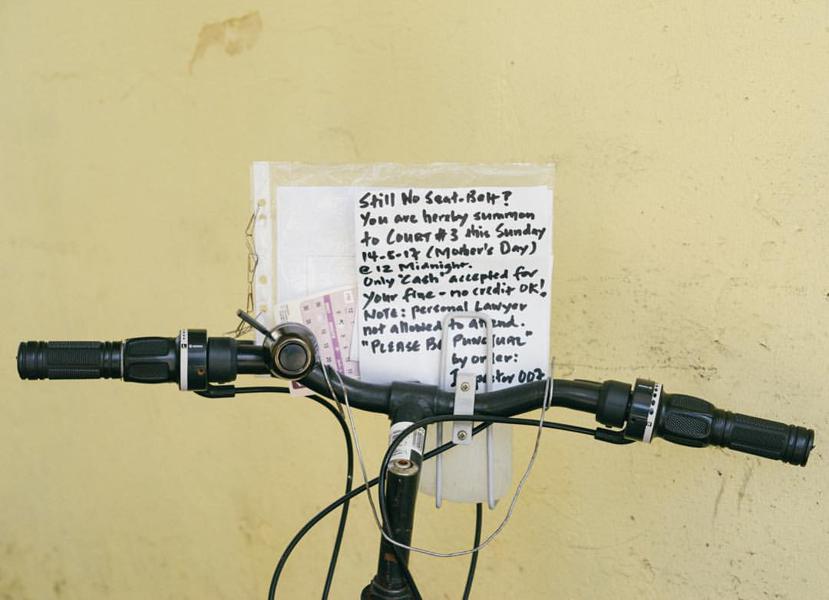 Still No Seat-Belt?
You are hereby summon
to COURT #3 this Sunday
14-5-17 (Mother's Day)
@ 12 Midnight.
Only "Cash" accepted for
your fine - no credit OK!
NOTE: personal Lawyer
not allowed to attend.
"PLEASE BE PUNCTUAL"
by order:
Inspector 007